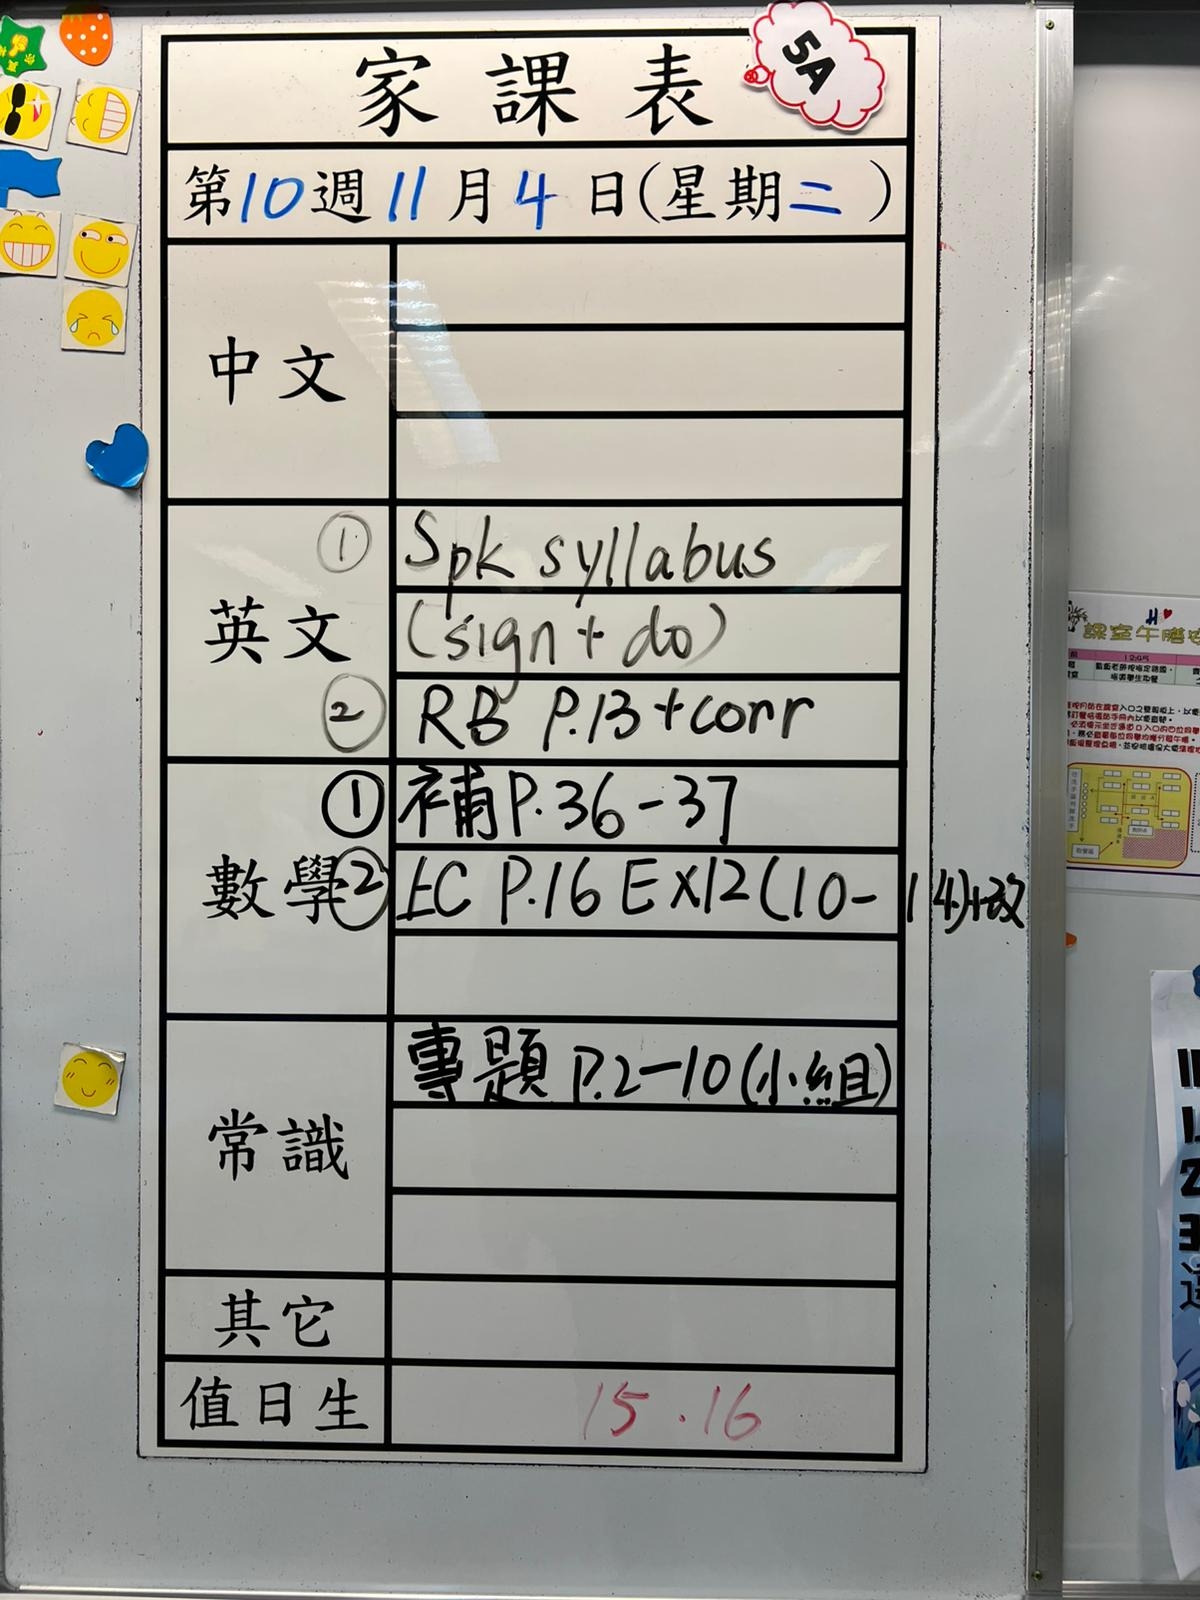 家課表
5A
第10週11月4日(星期二)
中文
英文
① Spk syllabus
(sign + do)
② RB P.13+corr
數學
① 補P.36-37
② EC P.16 Ex12(10-14)+改
常識
專題 P.2-10(小組)
其它
值日生
15.16
課室午膳
12:05